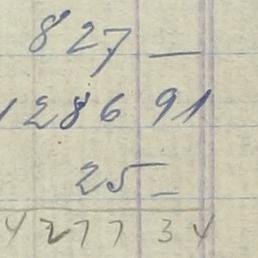 827 —
1286 91
25 —
4277 34